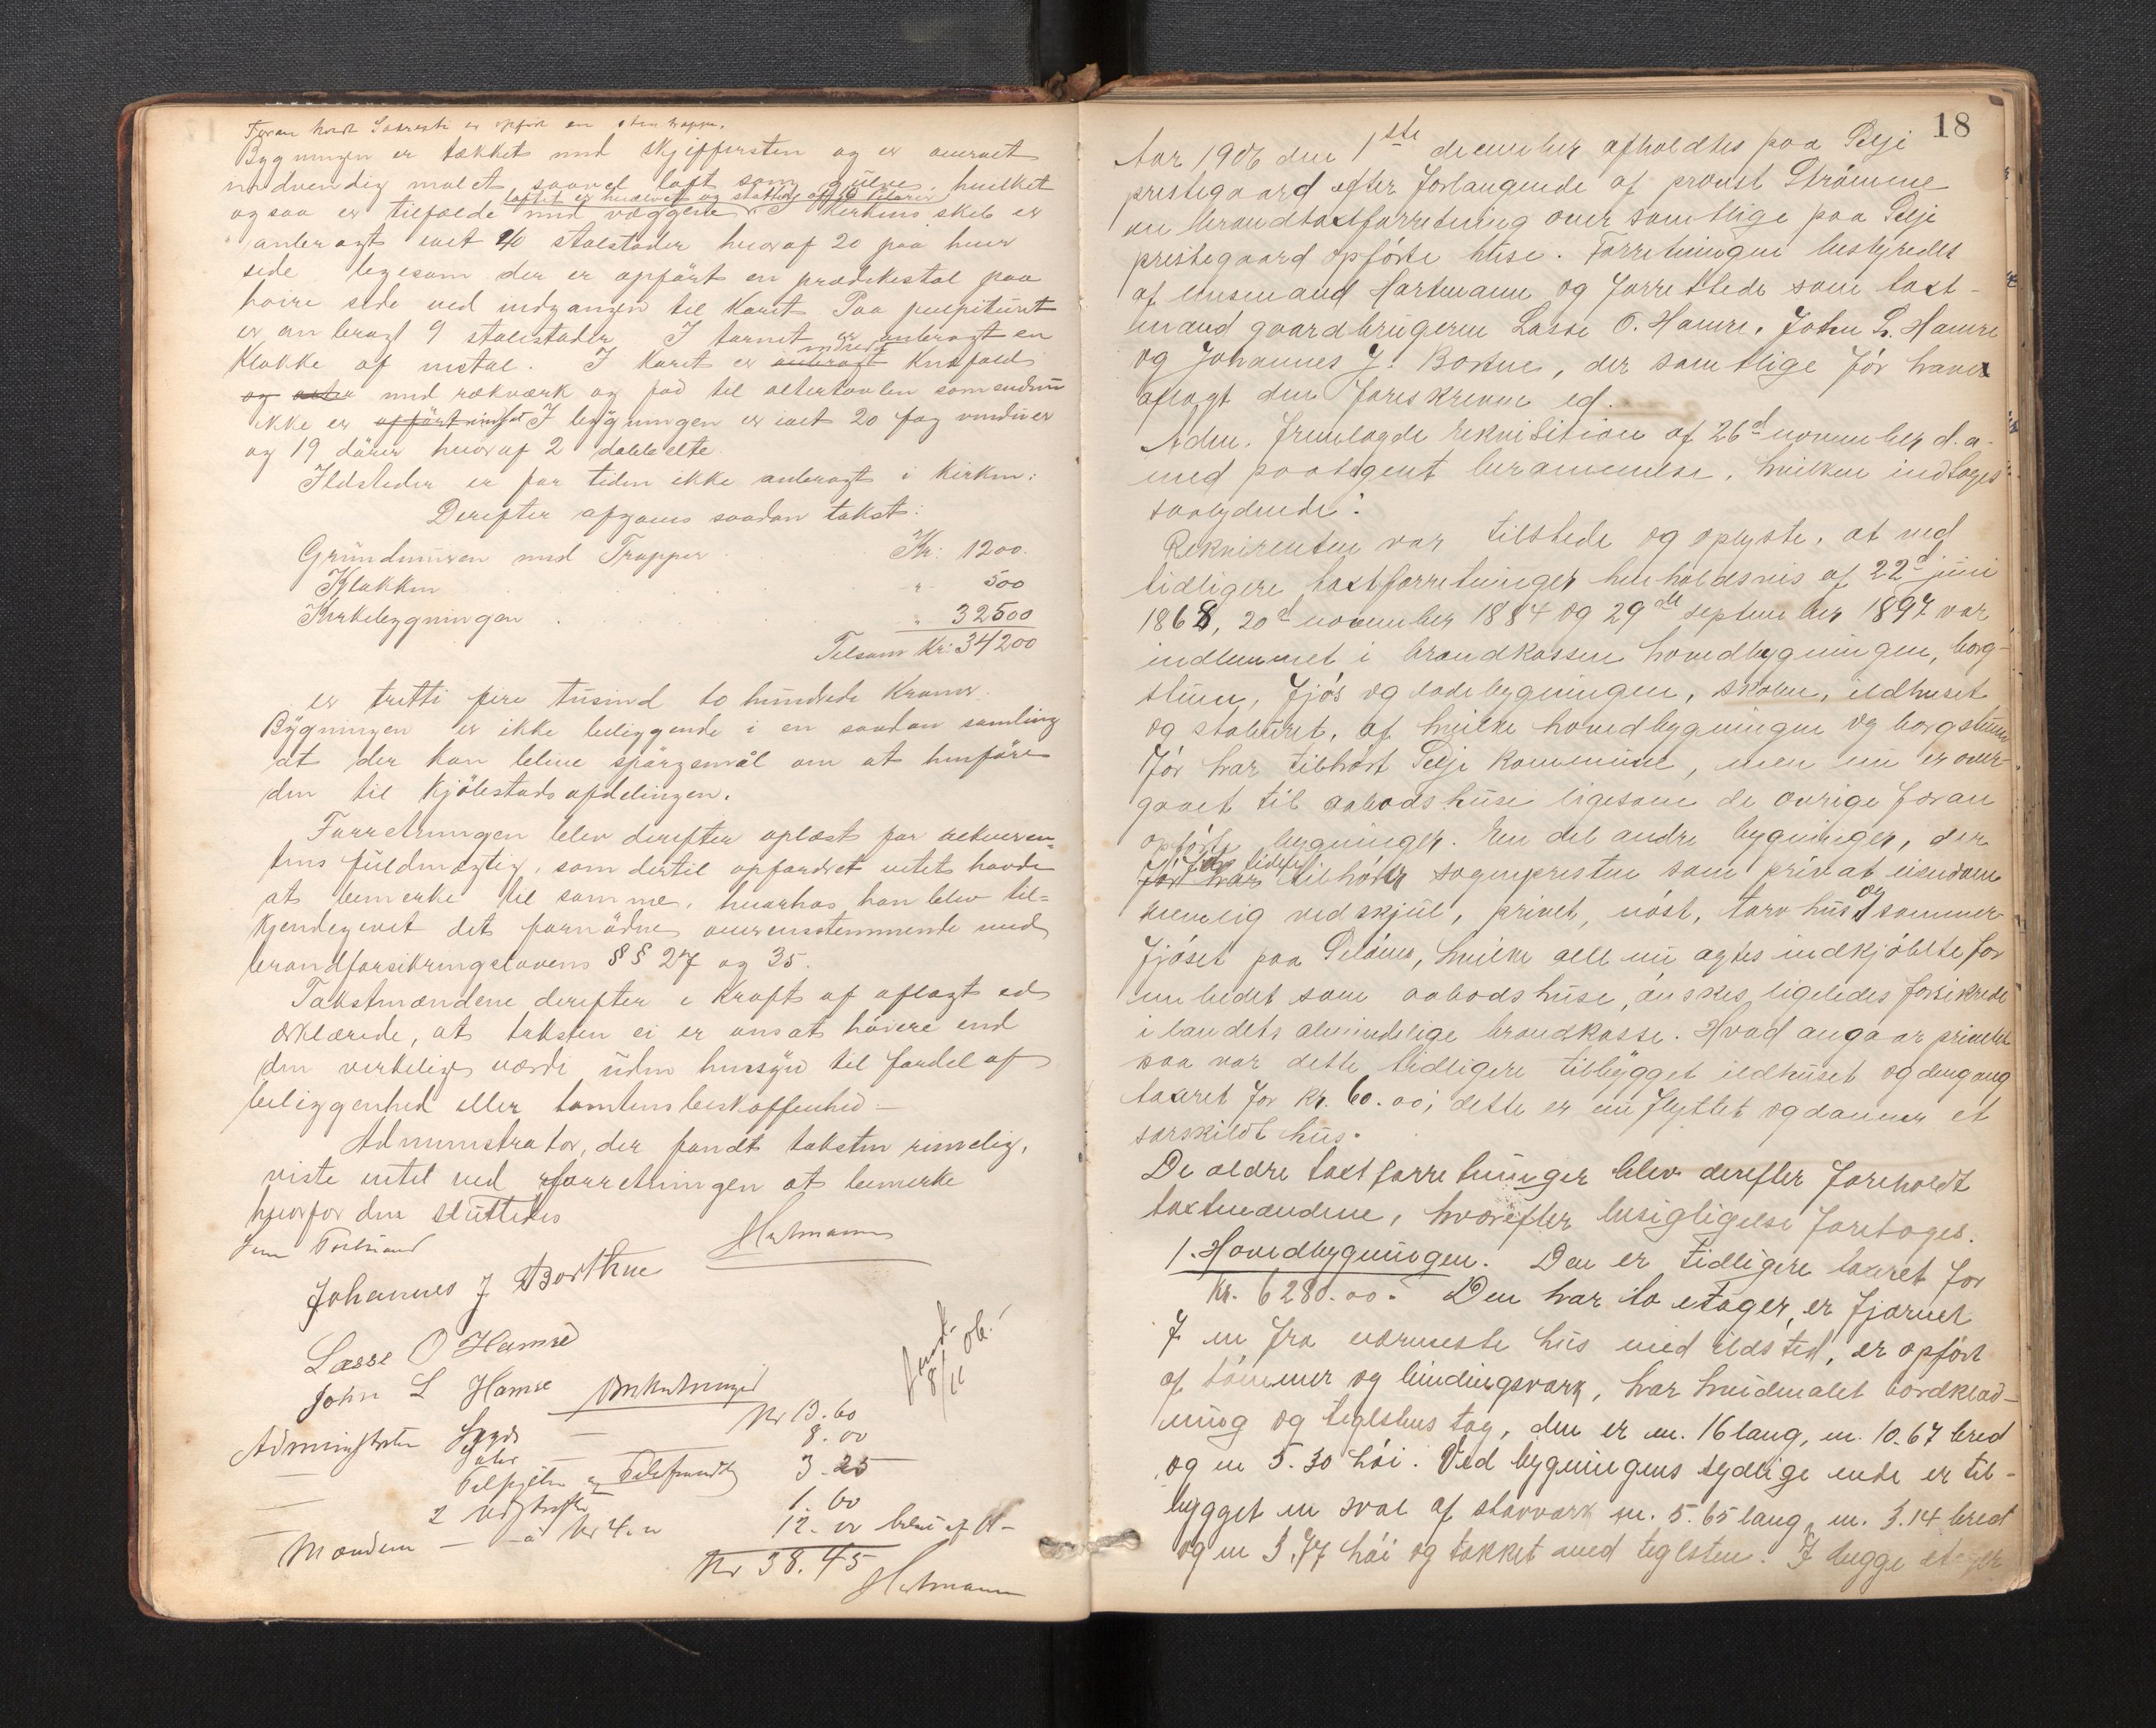 Foran hvert Sakresti er opført en stentrappe.
Bygningen er tækket med skjiffersten og er overalt
indvendig malet saavel loft som gulve, hvilket
loftet er hvælvet og støttet af 10 Pilarer
ogsaa er tilfælde med væggene. I Kirkens skib er
anbragt ialt 40 stolestader hvoraf 20 paa hver
side ligesom der er opført en prædikestol paa
høire side ved indgangen til Koret. Paa pulpituret
er anbragt 9 stolestader. I tarnet er anbragt en
Klokke af metal. I Koret er anbragt indredt Knæfald
og alter med rækværk og fod til altertavlen som endnu
ikke er opført indsat. I bygningen er ialt 20 fag vinduer
og 19 dører hvoraf 2 dobbelte.
Ildsteder er for tiden ikke anbragt i Kirken:
Derefter afgaves saadan takst:
Grundmuren med Trapper Kr: 1200.
Klokken " 500
Kirkebygningen " 32500
Tilsam Kr: 34200
er tretti fire tusind to hundrede Kroner.
Bygningen er ikke beliggende i en saadan samling
at der kan blive spørgsmål om at henføre
den til Kjøbstadsafdelingen.
Forretningen blev derefter oplæst for rekviren-
tens fuldmægtig, som dertil opfordret intet havde
at bemerke til samme, hvorhos han blev til-
kjendegivet det fornødne overensstemmende med
brandforsikringslovens §§ 27 og 35.
Takstmændene derefter i Kraft af aflagt ed
erklærede, at taksten ei er ansat høiere end
den virkelige værdi uden hensyn til fordel af
beliggenhed eller tomtens beskaffenhed –
Administrator, der fandt taksten rimelig,
viste intet ved forretningen at bemerke
hvorfor den sluttedes
Hartmann
som Taxtmænd
Johannes J Borthne
Lasse O Hamre
John L Hamre
Omkostninger
Administrator Kr 13.60
8.00
3.25
1.60
Mændene – à Kr 4.00 12.00
Kr 38.45
Hartmann
Aar 1906 den 1ste december afholdtes paa Selje
prestegaard efter forlangende af provst Strömme
en brandtaxtforretning over samtlige paa Selje
prestegaard opførte huse. Forretningen bestyredes
af lensmand Hartmann og forrettede som taxt-
mænd gaardbrugerne Lasse O. Hamre, John L. Hamre
og Johannes J. Bortne, der samtlige før haver
aflagt den foreskrevne ed.
Adm. fremlagde rekvisition af 26d november d.a.
med paategnet berammelse, hvilken indtages
saalydende:
Rekvirenten var tilstede og oplyste, at ved
tidligere taxtforretninger henholdsvis af 22d juni
1868, 20d november 1884 og 29de september 1897 var
indlemmet i brandkassen hovedbygningen, borg-
stuen, fjøs og ladebygningen, skolen, ildhuset
og staburet, af hvilke hovedbygningen og borgstuen
før har tilhørt Selje kommune, men nu er over-
gaaet til aabodshuse ligesom de øvrige foran
opførte bygninger. En del andre bygninger, der
før har tilhört sognepresten som privat eiendom
nemlig vedskjul, privet, nøst, tørvhus og sommer-
fjøset paa Selöens, hvilke alle nu agtes indkjøbte for
embedet som aabodshuse, ønskes ligeledes forsikrede
i landets almindelige brandkasse. Hvad angaar privetet
saa var dette tidligere tilbygget ildhuset og dengang
taxeret for kr. 60.00; dette er nu flyttet og danner et
særskildt hus.
De ældre taxtforretninger blev derefter foreholdt
taxtmændene, hvorefter besigtigelse foretoges.
1. Hovedbygningen. Den er tidligere taxeret for
kr. 6280.00. Den har to etager, er fjernet
7 m fra nærmeste hus med ildsted, er opført
af tømmer og bindingsværk, har hvidmalet bordklæd-
ning og teglstens tag, den er m. 16 lang, m. 10.67 bred
og m 5.30 høi. Ved bygningens sydlige ende er til-
bygget en sval af stavværk m. 5.65 lang, m. 3.14 bred
og m 3.77 høi og tækket med teglsten. I begge etager
18